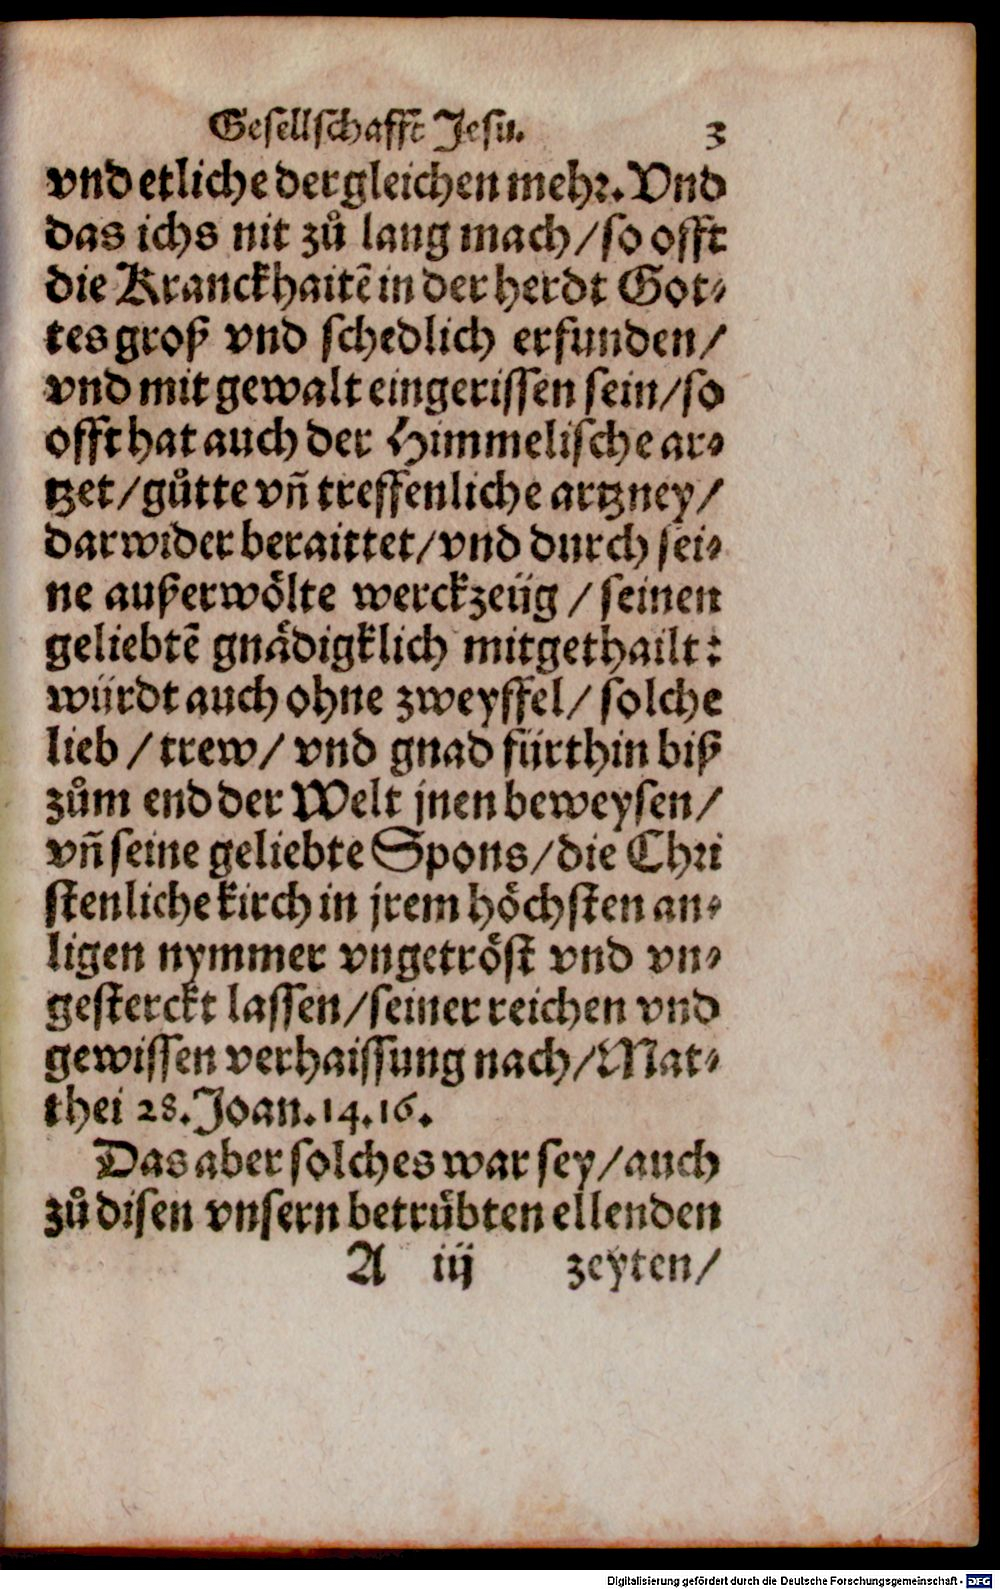 Gesellschafft Jesu. 3
vnd etliche dergleichen mehr. Vnd
das ichs nit zů lang mach/so offt
die Kranckhaitẽ in der herdt Got⸗
tes groß vnd schedlich erfunden/
vnd mit gewalt eingerissen sein/so
offt hat auch der Himmelische ar⸗
tzet/gůtte vñ treffenliche artzney/
darwider beraittet/vnd durch sei⸗
ne außerwoͤlte werckzeüg / seinen
geliebtẽ gnaͤdigklich mitgethailt:
würdt auch ohne zweyffel/ solche
lieb / trew/ vnd gnad fürthin biß
zům end der Welt jnen beweysen/
vñ seine geliebte Spons/die Chri
stenliche kirch in jrem hoͤchsten an⸗
ligen nymmer vngetroͤst vnd vn⸗
gesterckt lassen/seiner reichen vnd
gewissen verhaissung nach/Mat⸗
thei 28. Joan. 14. 16.
Das aber solches war sey/auch
zů disen vnsern betruͤbten ellenden
A iij zeyten/
Digitalisierung gefördert durch die Deutsche Forschungsgemeinschaft - DFG